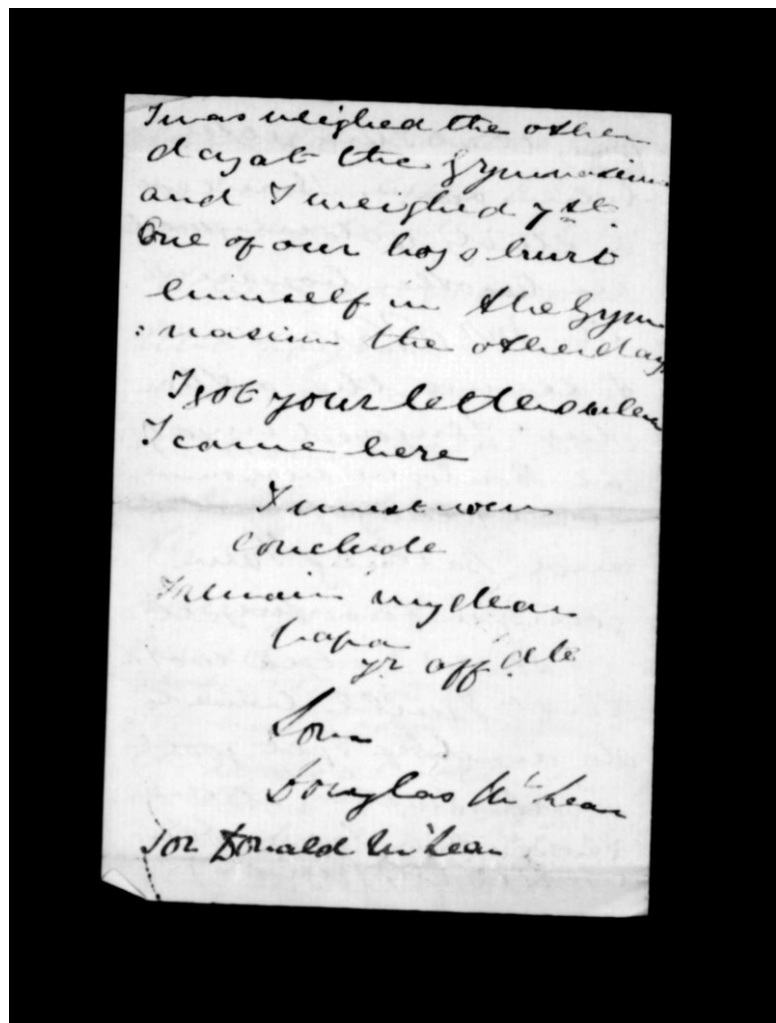 I was weighed the other
day at the Gymnasium
and I weighed 7 st.
One of our boys hurt
himself in the Gym
: nasium the other day
I got your letters when
I came here
I must now
conclude
I remain my dear
papa
yr. aff. ate
Son
Douglas McLean
Donald McLean